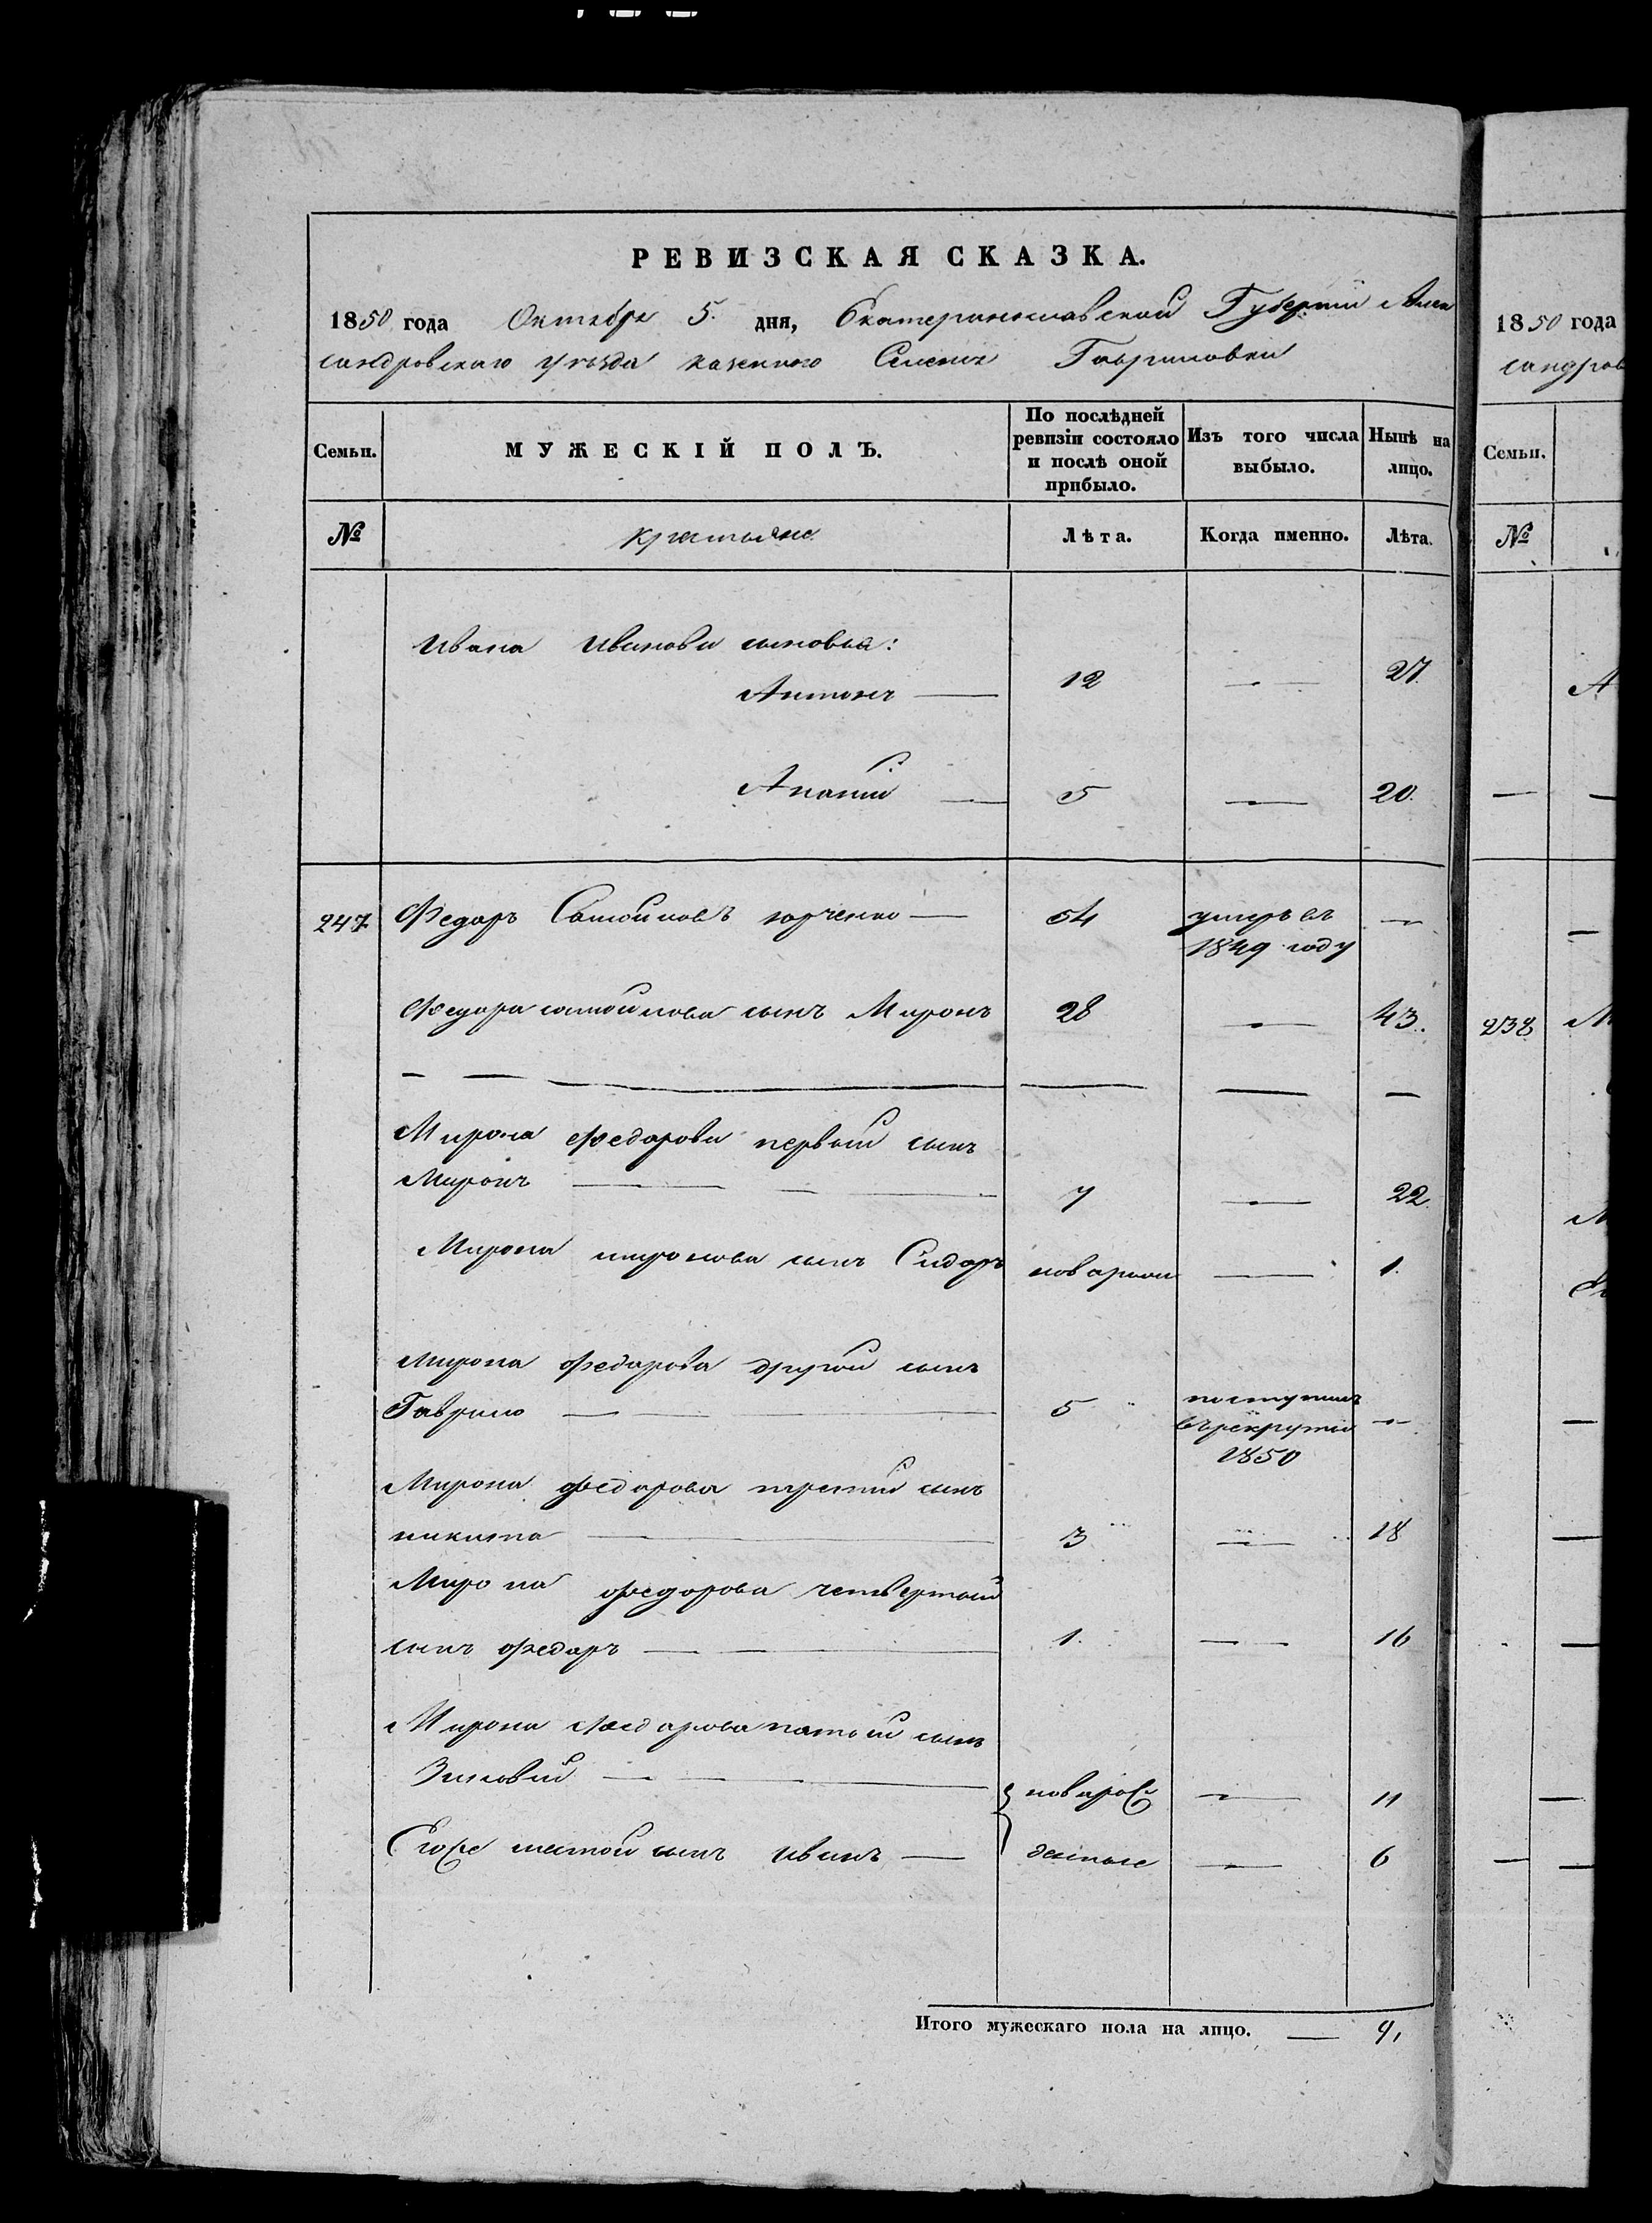 РЕВИЗСКАЯ СКАЗКА.
1850 года Октября 5. дня, Екатеринославской Губерніи Алек
сандровскаго уѣзда казенного Селенія Гавриловки
Семьи. МУЖЕСКІЙ ПОЛЪ. По послѣдней ревизіи состояло и послѣ оной прибыло. Изъ того числа выбыло. Нынѣ на лицо.
№ крестьяне Лѣта. Когда именно. Лѣта.
Ивана Иванова сыновья:
Антонъ — 12 — 27.
Ананій — 5 — 20.
247 Федоръ Самойловъ юрченко — 54 умеръ въ —
1849 году
Федора самойлова сынъ Миронъ 28 — 43.
Мирона федорова первый сынъ
Миронъ — 7 — 22.
Мирона миронова сынъ Сидоръ новорожд — 1.
Мирона федорова другой сынъ
Гаврило — 5 поступилъ —
въ рекруты
1850
Мирона федорова третий сынъ
никита — 3 — 18
Мирона федорова четвертый
сынъ федоръ — 1. — 16
Мирона федорова пятый сынъ
Зиновий — новорож — 11
Егоже шестой сынъ иванъ — денные — 6
Итого мужескаго пола на лицо. — 9,
1850 года
сандров
Семьи.
№
238